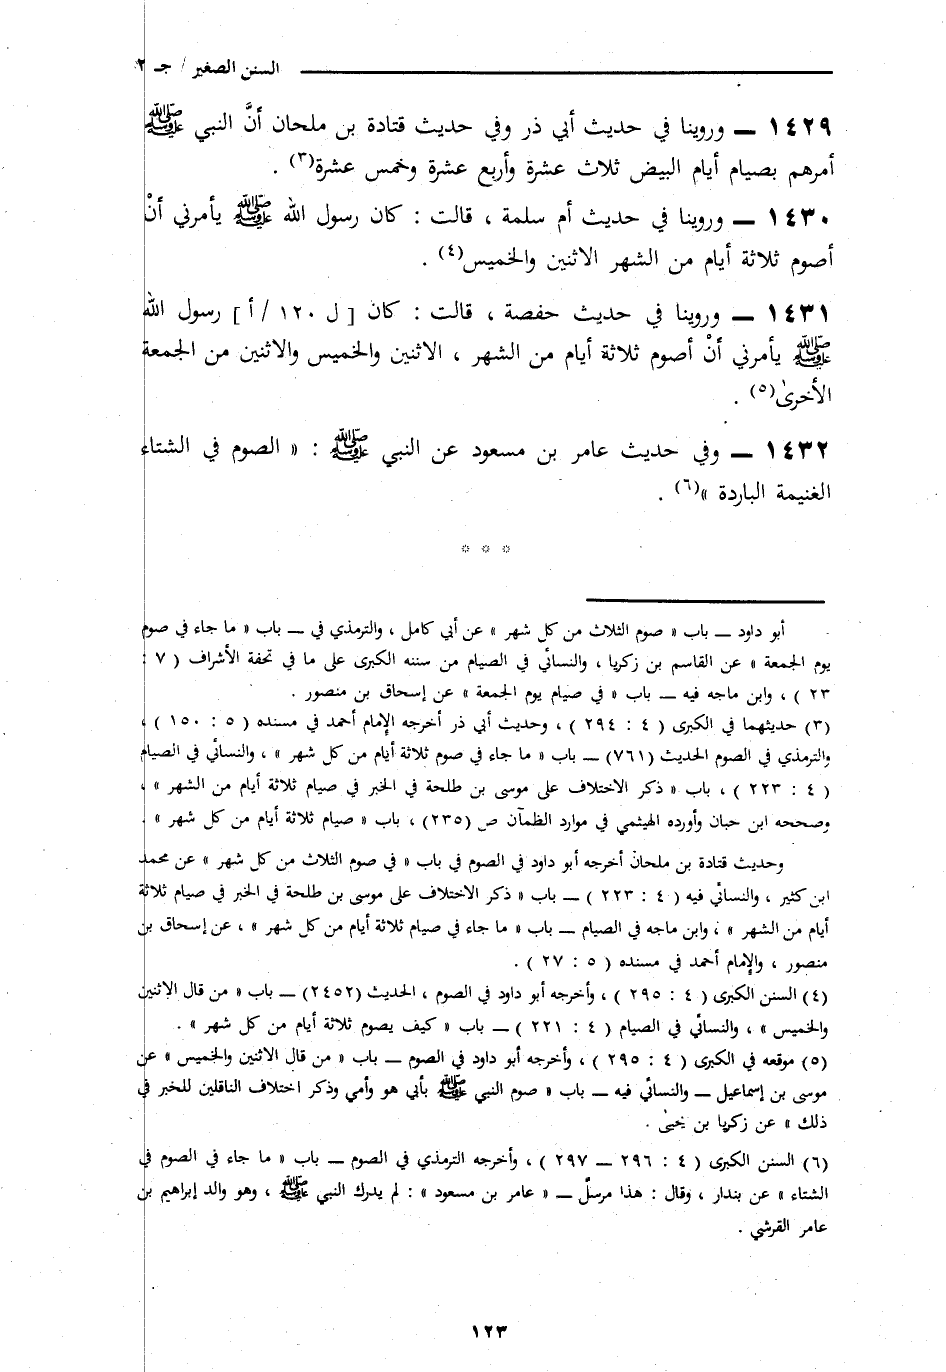 السنن الصغير / جـ ٢
١٤٢٩ ــ وروينا في حديث أبي ذر وفي حديث قتادة بن ملحان أنَّ النبي ﷺ
أمرهم بصيام أيام البيض ثلاث عشرة وأربع عشرة وخمس عشرة(٣) .
١٤٣٠ ــ وروينا في حديث أم سلمة ، قالت : كان رسول الله ﷺ يأمرني أنْ
أصوم ثلاثة أيام من الشهر الاثنين والخميس(٤) .
١٤٣١ ــ وروينا في حديث حفصة ، قالت : كان [ ل ١٢٠ / أ ] رسول الله
ﷺ يأمرني أنْ أصوم ثلاثة أيام من الشهر ، الاثنين والخميس والاثنين من الجمعة
الأخرىٰ(٥) .
١٤٣٢ ــ وفي حديث عامر بن مسعود عن النبي ﷺ : « الصوم في الشتاء
الغنيمة الباردة »(٦) .
* * *
أبو داود ــ باب « صوم الثلاث من كل شهر » عن أبي كامل ، والترمذي في ــ باب « ما جاء في صوم
يوم الجمعة » عن القاسم بن زكريا ، والنسائي في الصيام من سننه الكبرى على ما في تحفة الأشراف ( ٧ :
٢٣ ) ، وابن ماجه فيه ــ باب « في صيام يوم الجمعة » عن إسحاق بن منصور .
(٣) حديثهما في الكبرى ( ٤ : ٢٩٤ ) ، وحديث أبي ذر أخرجه الإمام أحمد في مسنده ( ٥ : ١٥٠ ) ،
والترمذي في الصوم الحديث (٧٦١) ــ باب « ما جاء في صوم ثلاثة أيام من كل شهر » ، والنسائي في الصيام
( ٤ : ٢٢٣ ) ، باب « ذكر الاختلاف على موسى بن طلحة في الخبر في صيام ثلاثة أيام من الشهر » ،
وصححه ابن حبان وأورده الهيثمي في موارد الظمآن ص (٢٣٥) ، باب « صيام ثلاثة أيام من كل شهر » .
وحديث قتادة بن ملحان أخرجه أبو داود في الصوم في باب « في صوم الثلاث من كل شهر » عن محمد
ابن كثير ، والنسائي فيه ( ٤ : ٢٢٣ ) ــ باب « ذكر الاختلاف على موسى بن طلحة في الخبر في صيام ثلاثة
أيام من الشهر » ، وابن ماجه في الصيام ــ باب « ما جاء في صيام ثلاثة أيام من كل شهر » ، عن إسحاق بن
منصور ، والإمام أحمد في مسنده ( ٥ : ٢٧ ) .
(٤) السنن الكبرى ( ٤ : ٢٩٥ ) ، وأخرجه أبو داود في الصوم ، الحديث (٢٤٥٢) ــ باب « من قال الاثنين
والخميس » ، والنسائي في الصيام ( ٤ : ٢٢١ ) ــ باب « كيف يصوم ثلاثة أيام من كل شهر » .
(٥) موقعه في الكبرى ( ٤ : ٢٩٥ ) ، وأخرجه أبو داود في الصوم ــ باب « من قال الاثنين والخميس » عن
موسى بن إسماعيل ــ والنسائي فيه ــ باب « صوم النبي ﷺ بأبي هو وأمي وذكر اختلاف الناقلين للخبر في
ذلك » عن زكريا بن يحيىٰ .
(٦) السنن الكبرى ( ٤ : ٢٩٦ ــ ٢٩٧ ) ، وأخرجه الترمذي في الصوم ــ باب « ما جاء في الصوم في
الشتاء » عن بندار ، وقال : هذا مرسلٌ ــ « عامر بن مسعود » : لم يدرك النبي ﷺ ، وهو والد إبراهيم بن
عامر القرشي .
١٢٣